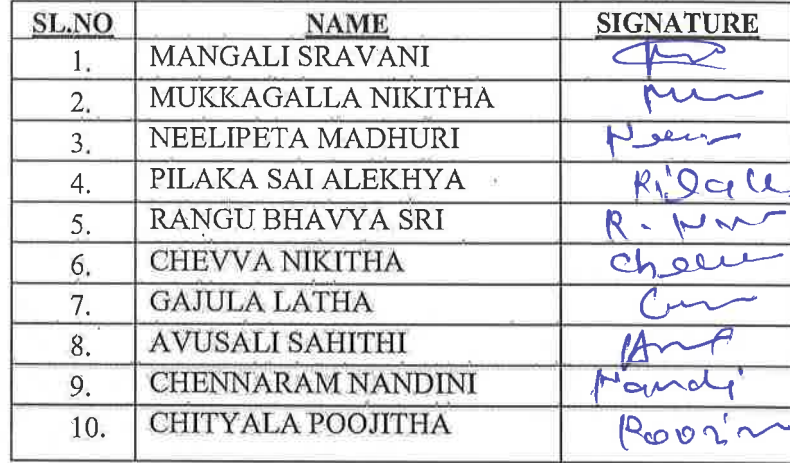 SL.NO NAME SIGNATURE
1. MANGALI SRAVANI
2. MUKKAGALLA NIKITHA
3. NEELIPETA MADHURI
4. PILAKA SAI ALEKHYA
5. RANGU BHAVYA SRI R.
6. CHEVVA NIKITHA
7. GAJULA LATHA
8. AVUSALI SAHITHI
9. CHENNARAM NANDINI Nandi
10. CHITYALA POOJITHA